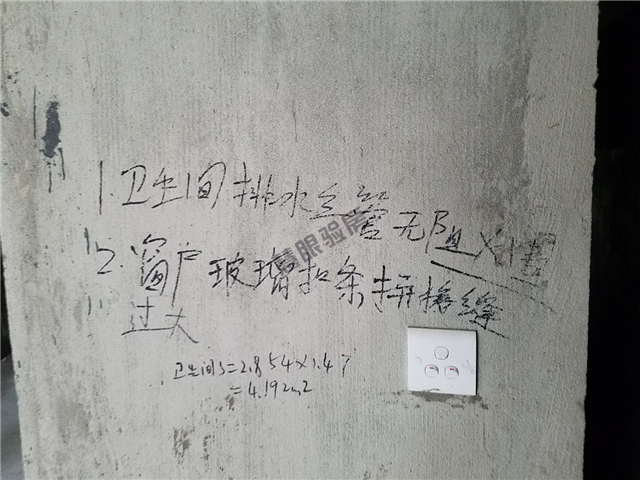 1.卫生间排水立管无阻火圈
2.窗户玻璃扣条拼接缝
过大
卫生间S=2.854×1.47
=4.192m2
慧眼验房